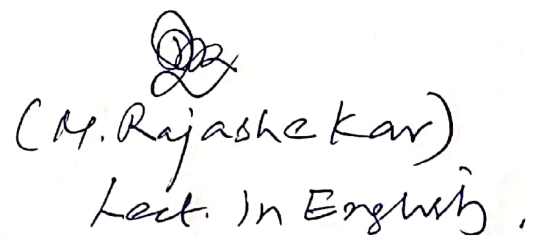 (M. Rajashekar)
Lect. in English.